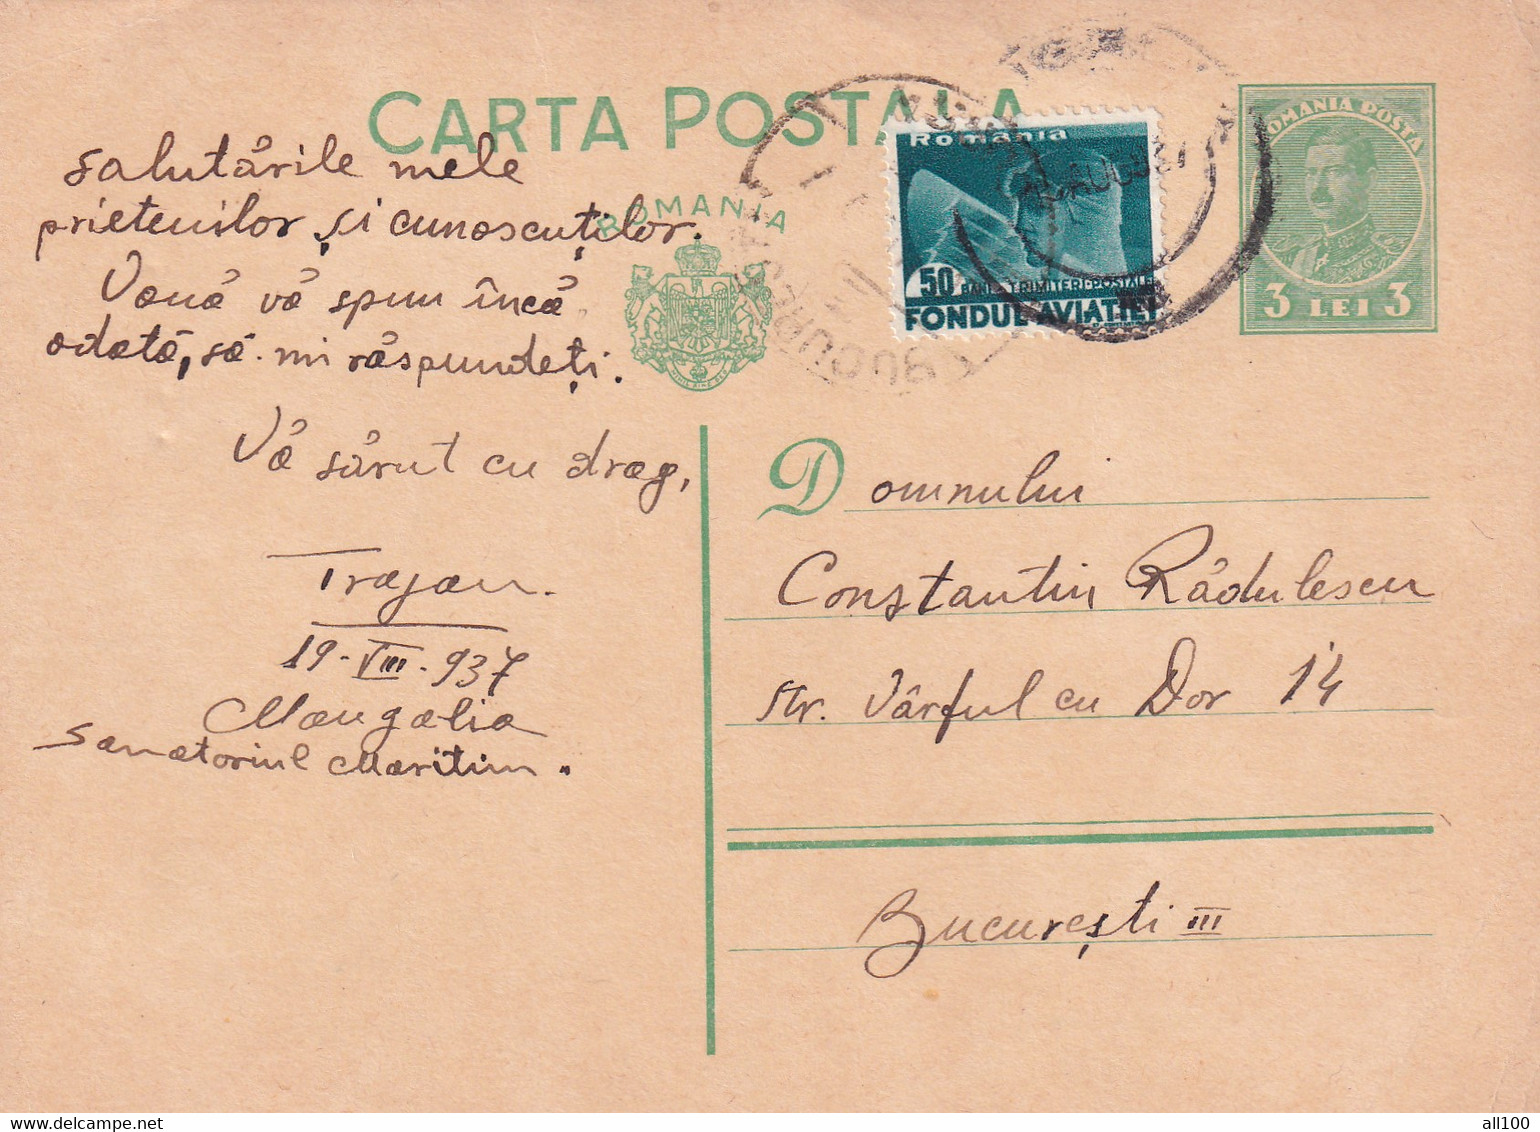 CARTA POSTALA
ROMANIA
NIHIL SINE DEO
România
50 BANI TRIMITERI POSTALE
FONDUL AVIAȚIEI
AUG 937
BUCURESTI
ROMANIA POSTA
3 LEI 3
salutările mele
prietenilor și cunoscuților.
Vouă vă spun încă
odată, să-mi răspundeți.
Vă sărut cu drag,
Trajan.
19-VIII-937
Mangalia
Sanatoriul Maritim.
Domnului
Constantin Rădulescu
str. Vârful cu Dor 14
București III
all100